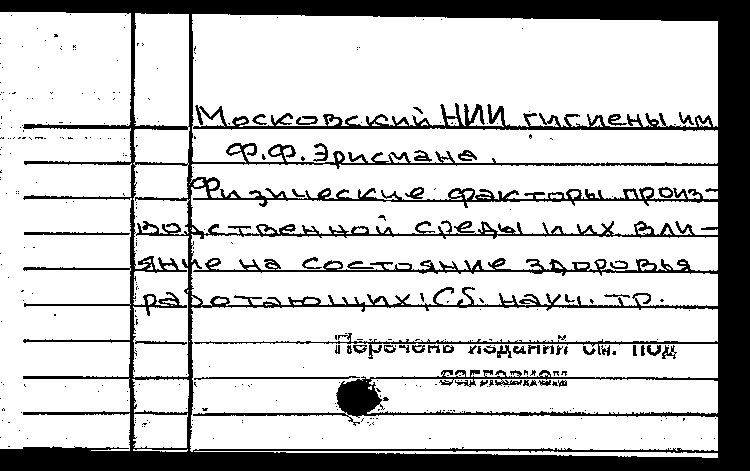 Московский НИИ гигиены им
Ф.Ф. Эрисмана.
Физические факторы произ-
водственной среды и их вли-
яние на состояние здоровья
работающих: Сб. науч. тр.
Перечень изданий см. под
заглавием